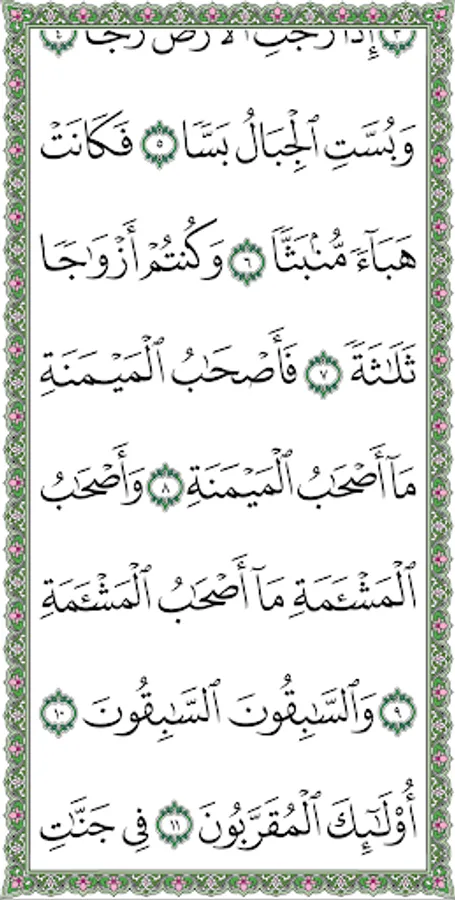 ٣ إِذَا رُجَّتِ ٱلْأَرْضُ رَجًّا ٤
وَبُسَّتِ ٱلْجِبَالُ بَسًّا ٥ فَكَانَتْ
هَبَآءً مُّنۢبَثًّا ٦ وَكُنتُمْ أَزْوَٰجًا
ثَلَـٰثَةً ٧ فَأَصْحَـٰبُ ٱلْمَيْمَنَةِ
مَآ أَصْحَـٰبُ ٱلْمَيْمَنَةِ ٨ وَأَصْحَـٰبُ
ٱلْمَشْـَٔمَةِ مَآ أَصْحَـٰبُ ٱلْمَشْـَٔمَةِ
٩ وَٱلسَّـٰبِقُونَ ٱلسَّـٰبِقُونَ ١٠
أُو۟لَـٰٓئِكَ ٱلْمُقَرَّبُونَ ١١ فِى جَنَّـٰتِ